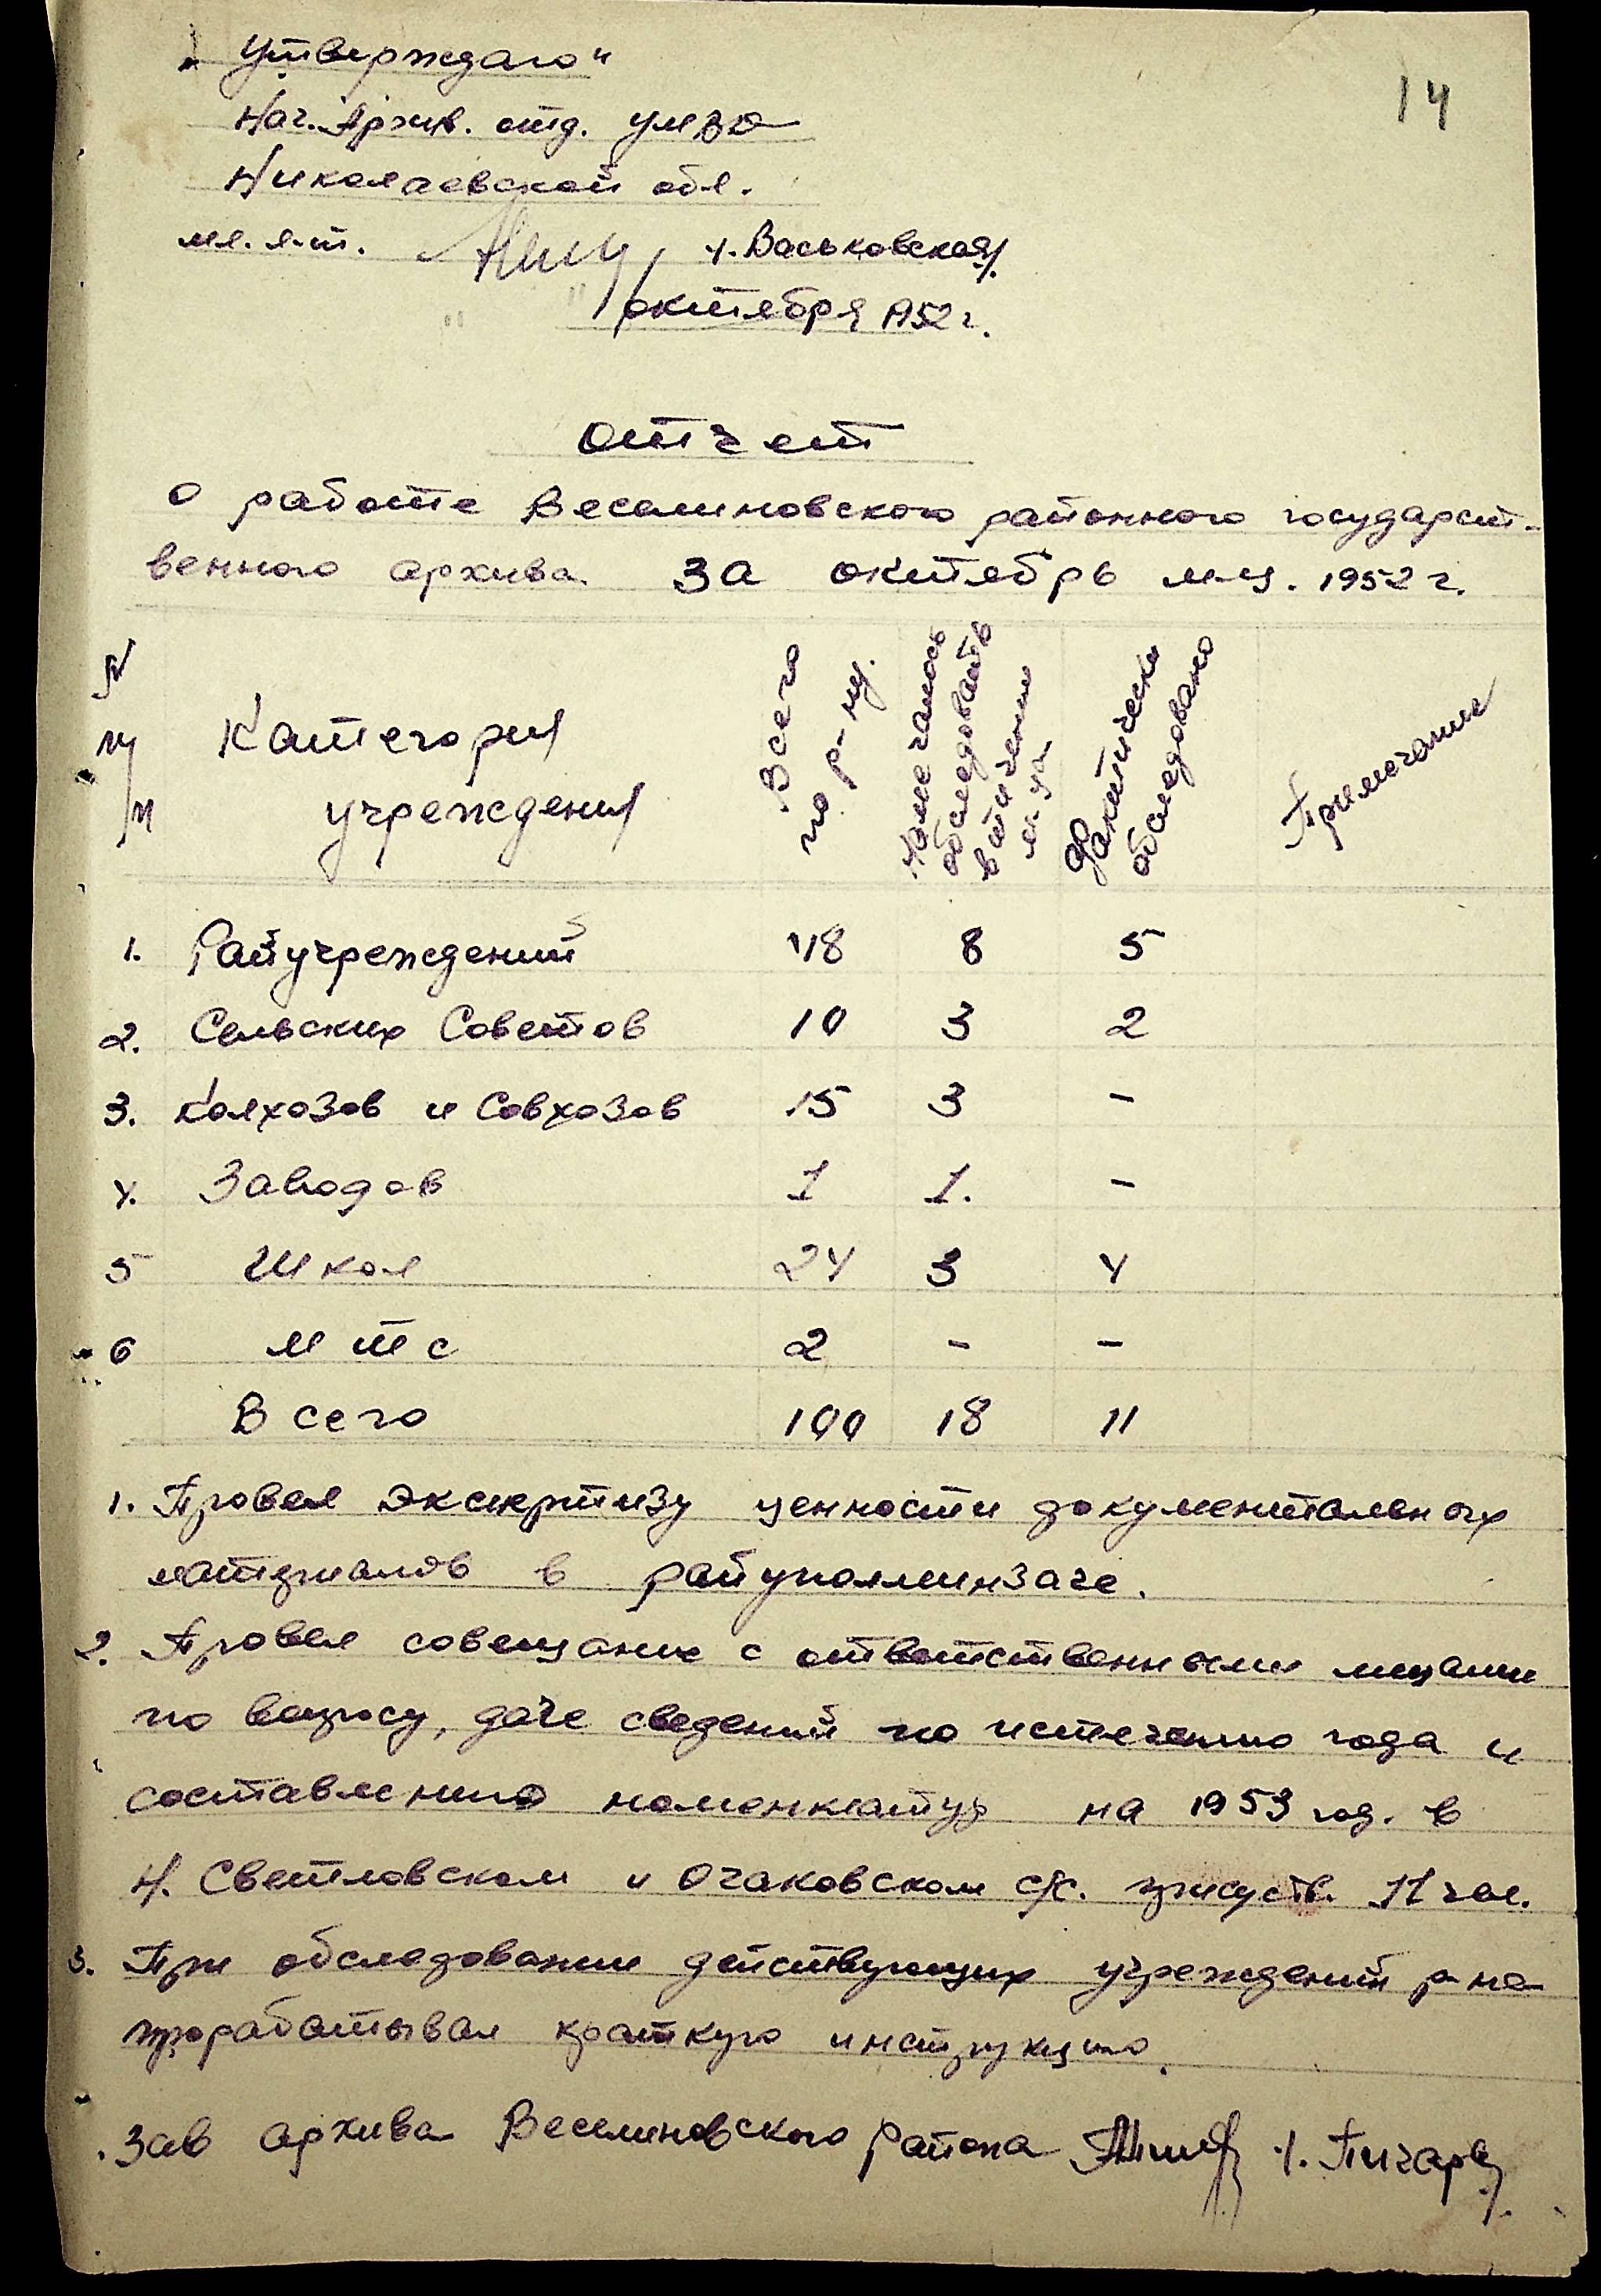 „Утверждаю"
14
Нач. Архив. отд. УМВД
Николаевской обл.
мл. л-т. /. Васьковская/.
" " октября 1952 г.
Отчет
о работе Веселиновского районного государст-
венного архива за октябрь м-ц. 1952 г.
N п/п Категория учреждения Всего по р-ну. Намечалось обследовать в течении м-ца Фактически обследовано Примечание
1. Райучреждений 48 8 5
2. Сельских Советов 10 3 2
3. Колхозов и Совхозов 15 3 -
4. Заводов 1 1. -
5 Школ 24 3 4
6 МТС 2 - -
Всего 100 18 11
1. Провел экспертизу ценности документальных
материалов в райуполминзаге.
2. Провел совещание с ответственными лицами
по вопросу, даче сведений по истечению года и
составлению номенклатур на 1953 год. в
Н. Светловском и Очаковском с/с. присутств. 11 чел.
3. При обследовании действующих учреждений р-на
прорабатывал краткую инструкцию.
Зав архива Веселиновского района /. Пичарев/.